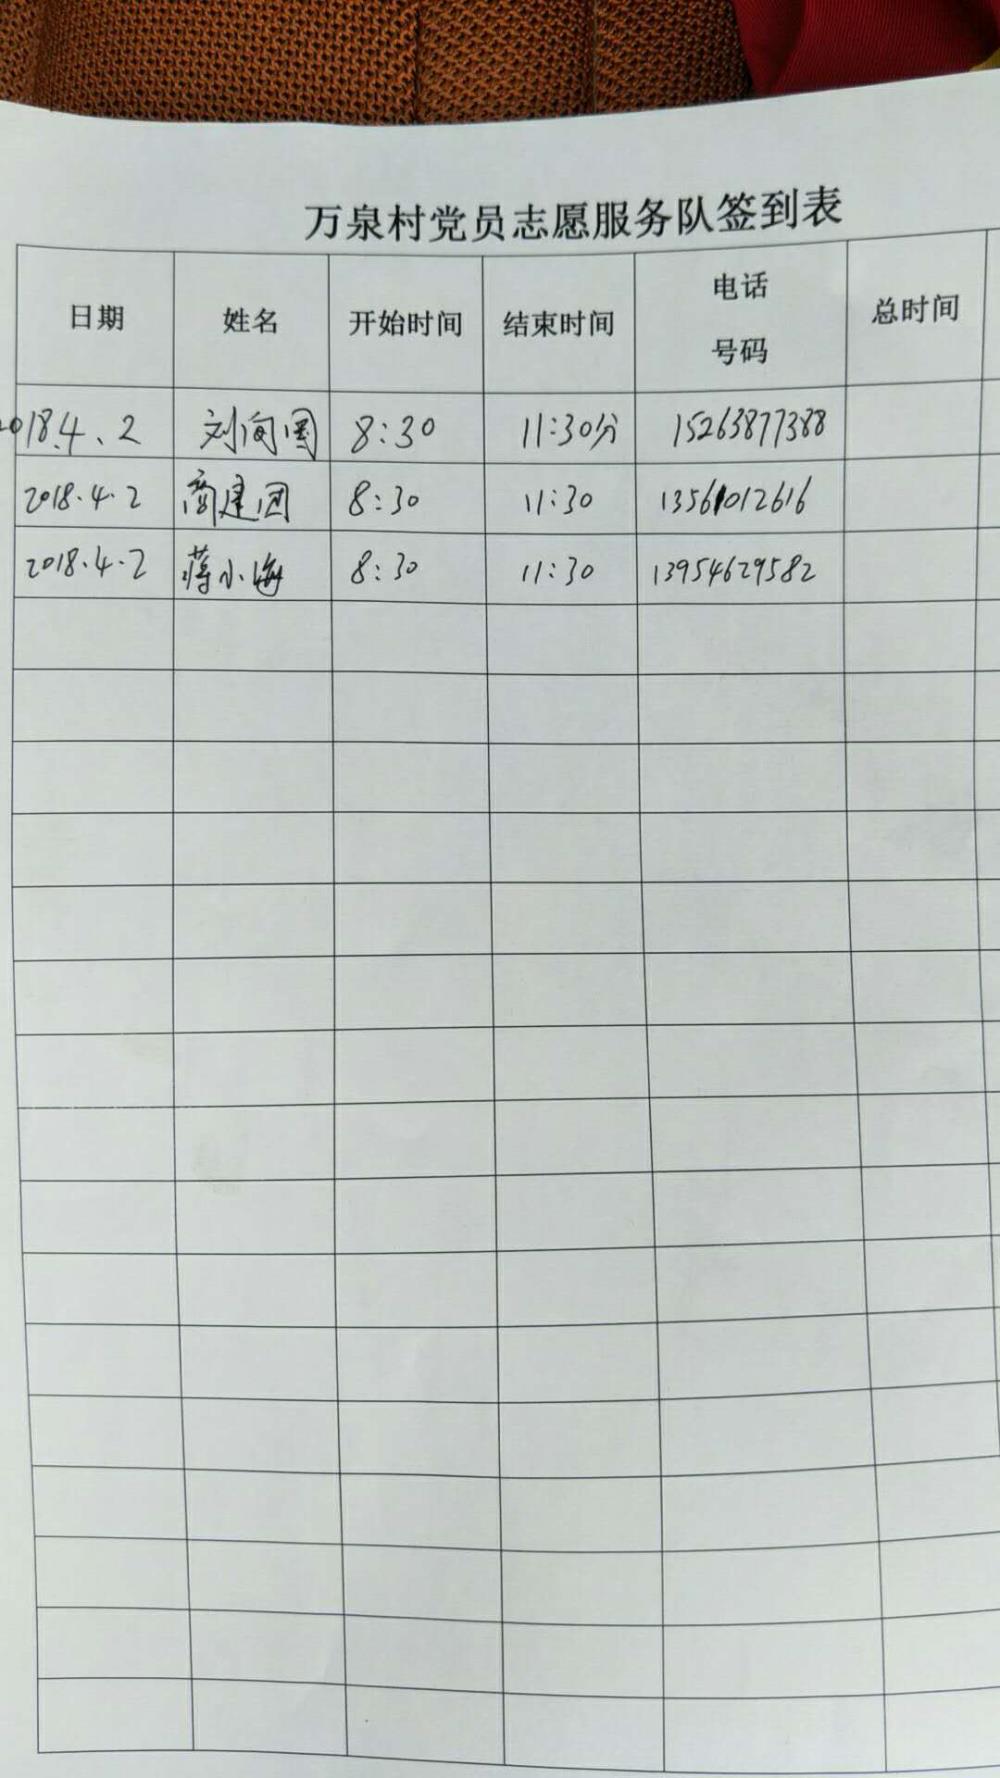 万泉村党员志愿服务队签到表
日期 姓名 开始时间 结束时间 电话号码 总时间
2018.4、2 刘闻国 8:30 11:30分 15263877388
2018.4.2 商建团 8:30 11:30 13561012616
2018.4.2 蒋小海 8:30 11:30 13954629582